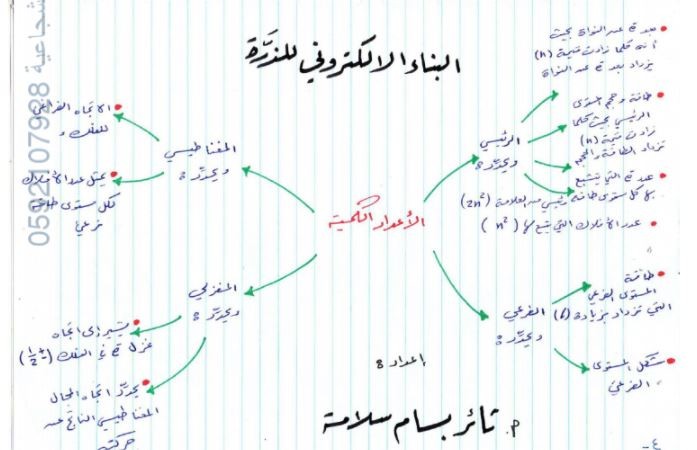 البناء الالكتروني للذرّة
الأعداد الكمية
الرئيسي
ويحدّد :
بعد e عن النواة بحيث
أنه كلما زادت قيمة (n)
يزداد بعد e عن النواة
طاقة وحجم المستوى
الرئيسي بحيث كلما
زادت قيمة (n)
تزداد الطاقة والحجم
عدد e التي يتشبع
بها كل مستوى طاقة رئيسي من العلاقة (2n²)
عدد الأفلاك التي يتسع لها (n²)
الفرعي
ويحدّد :
طاقة
المستوى الفرعي
التي تزداد بزيادة (l)
شكل المستوى
الفرعي
المغناطيسي
ويحدّد :
الاتجاه الفراغي
للفلك و
يمثل عدد الأفلاك
لكل مستوى طاقة
فرعي
المغزلي
ويحدّد :
يشير إلى اتجاه
غزل e في الفلك (±½)
يحدّد اتجاه المجال
المغناطيسي الناتج عن
حركته
إعداد :
م. ثائر بسام سلامة
-٤
شجاعية 0592107998